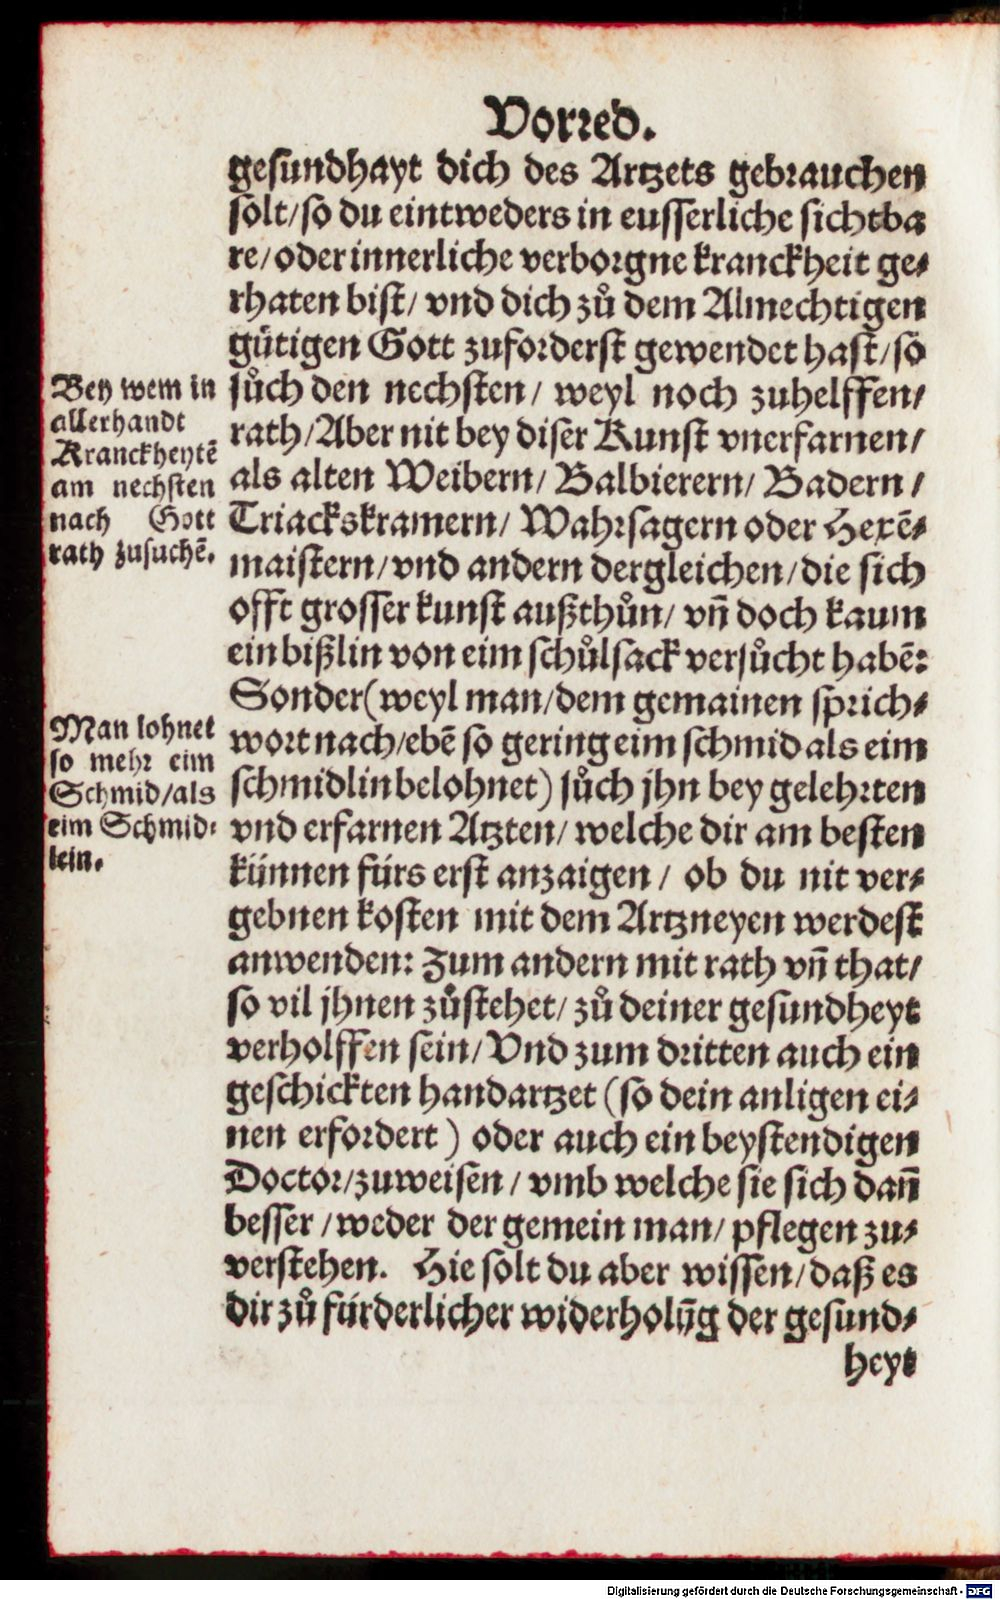 Vorred.
gesundhayt dich des Artzets gebrauchen
solt/so du eintweders in eusserliche sichtba
re/oder innerliche verborgne kranckheit ge-
rhaten bist/ vnd dich zů dem Almechtigen
gütigen Gott zuforderst gewendet hast/so
sůch den nechsten/ weyl noch zuhelffen/
rath/Aber nit bey diser Kunst vnerfarnen/
als alten Weibern/ Balbierern/ Badern/
Triackskramern/ Wahrsagern oder Hexē-
maistern/vnd andern dergleichen/die sich
offt grosser kunst außthůn/ vñ doch kaum
ein bißlin von eim schůlsack versůcht habē:
Sonder(weyl man/dem gemainen sprich-
wort nach/ebē so gering eim schmid als eim
schmidlin belohnet) sůch jhn bey gelehrten
vnd erfarnen Atzten/ welche dir am besten
künnen fürs erst anzaigen/ ob du nit ver-
gebnen kosten mit dem Artzneyen werdest
anwenden: Zum andern mit rath vñ that/
so vil jhnen zůstehet/ zů deiner gesundheyt
verholffen sein/Vnd zum dritten auch ein
geschickten handartzet (so dein anligen ei-
nen erfordert) oder auch ein beystendigen
Doctor/zuweisen/ vmb welche sie sich dañ
besser/weder der gemein man/ pflegen zu-
verstehen. Hie solt du aber wissen/daß es
dir zů fürderlicher widerholūg der gesund-
heyt
Bey wem in
allerhandt
Kranckheytē
am nechsten
nach Gott
rath zusuchē.
Man lohnet
so mehr eim
Schmid/als
eim Schmid-
lein.
Digitalisierung gefördert durch die Deutsche Forschungsgemeinschaft - DFG